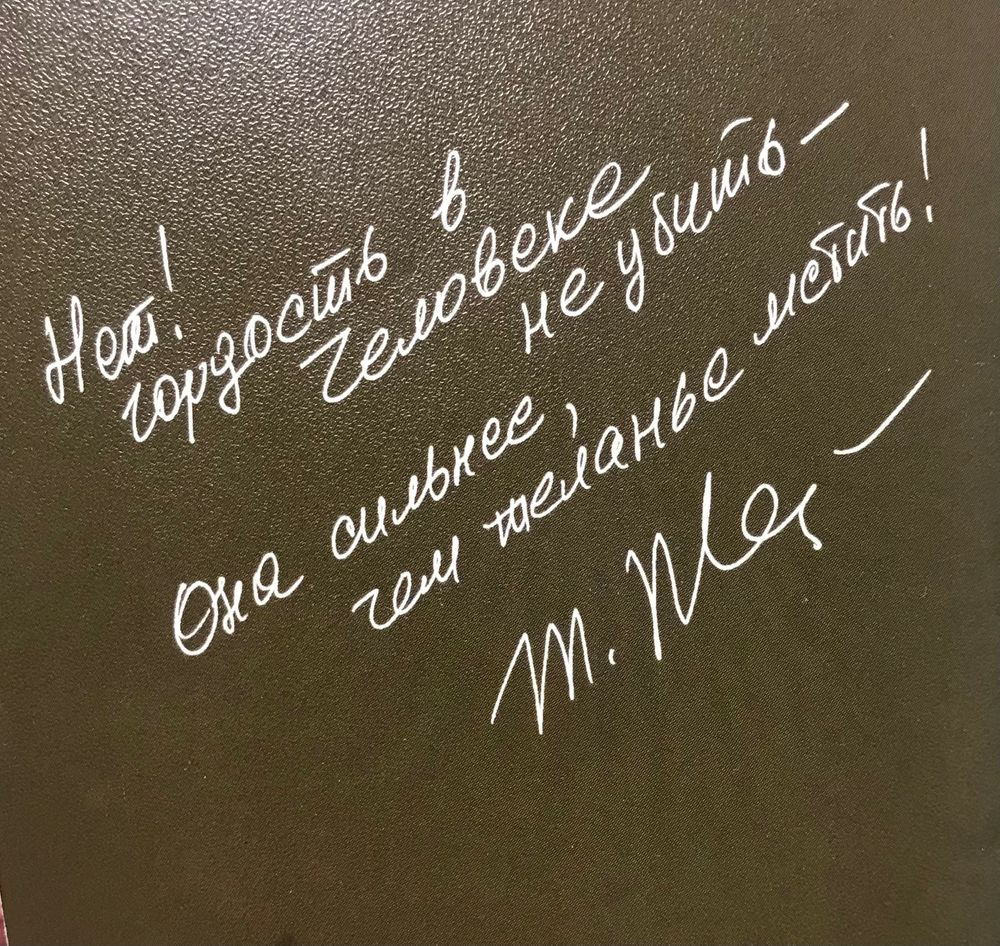 Нет!
гордость в
человеке
не убить –
Она сильнее,
чем желанье мстить!